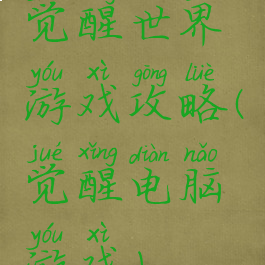 觉醒世界
yóu xì gōng lüè
游戏攻略(
jué xǐng diàn nǎo
觉醒电脑
yóu xì
游戏)